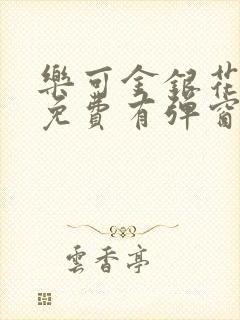 樂可金銀花
免費有彈窗
雲香亭